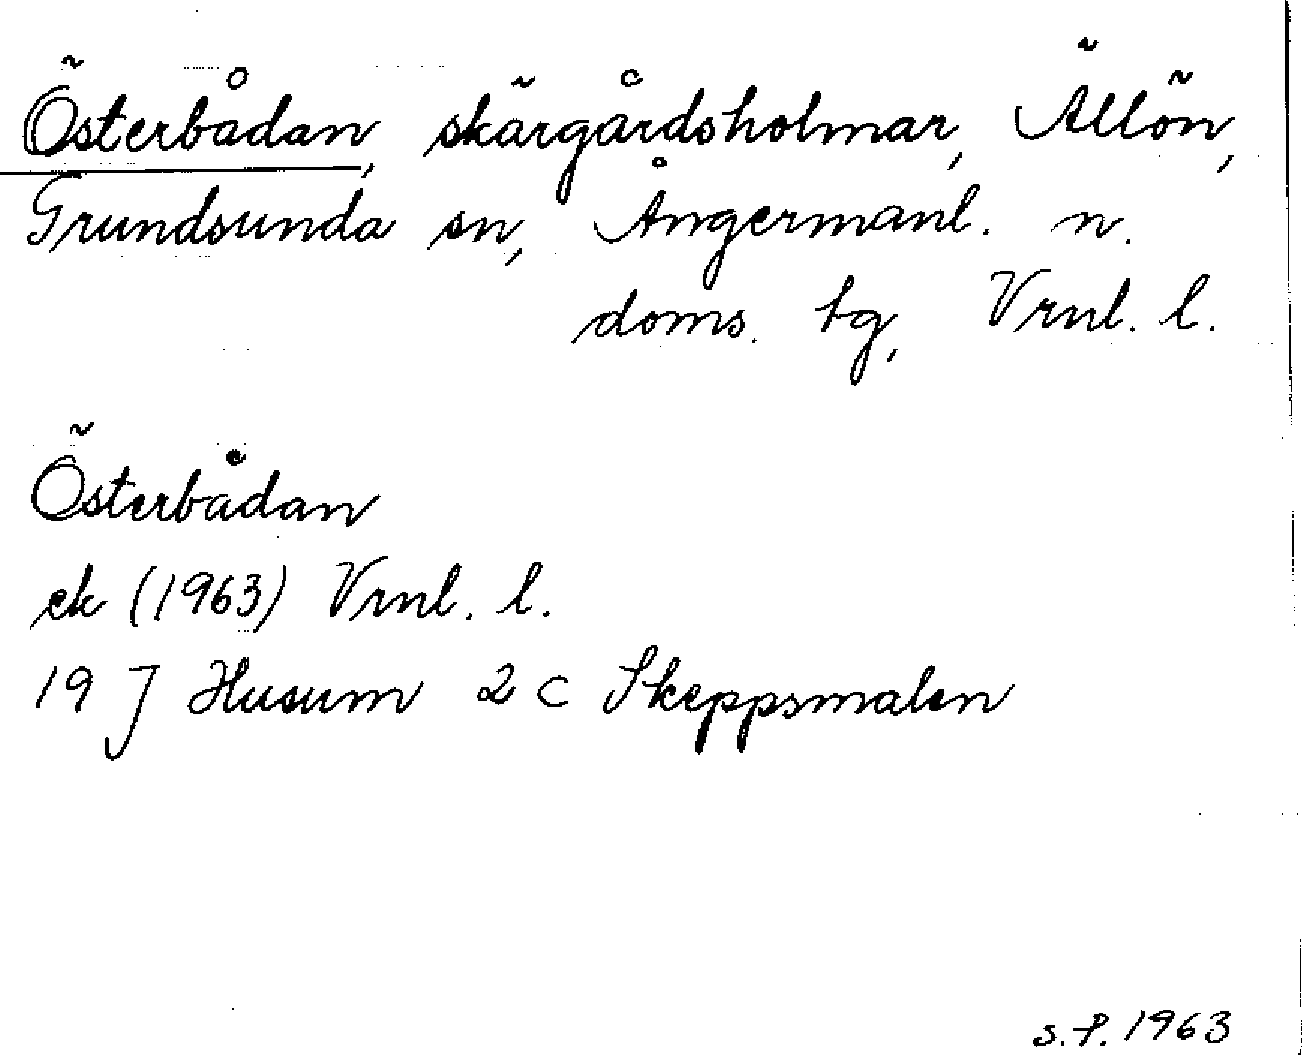 Österbådan, skärgårdsholmar, Ällön,
Grundsunda sn, Ångermanl. n.
doms. tg, Vrnl. l.
Österbådan
ek (1963) Vrnl. l.
19 J Husum 2 c Skeppsmalen
S.P. 1963